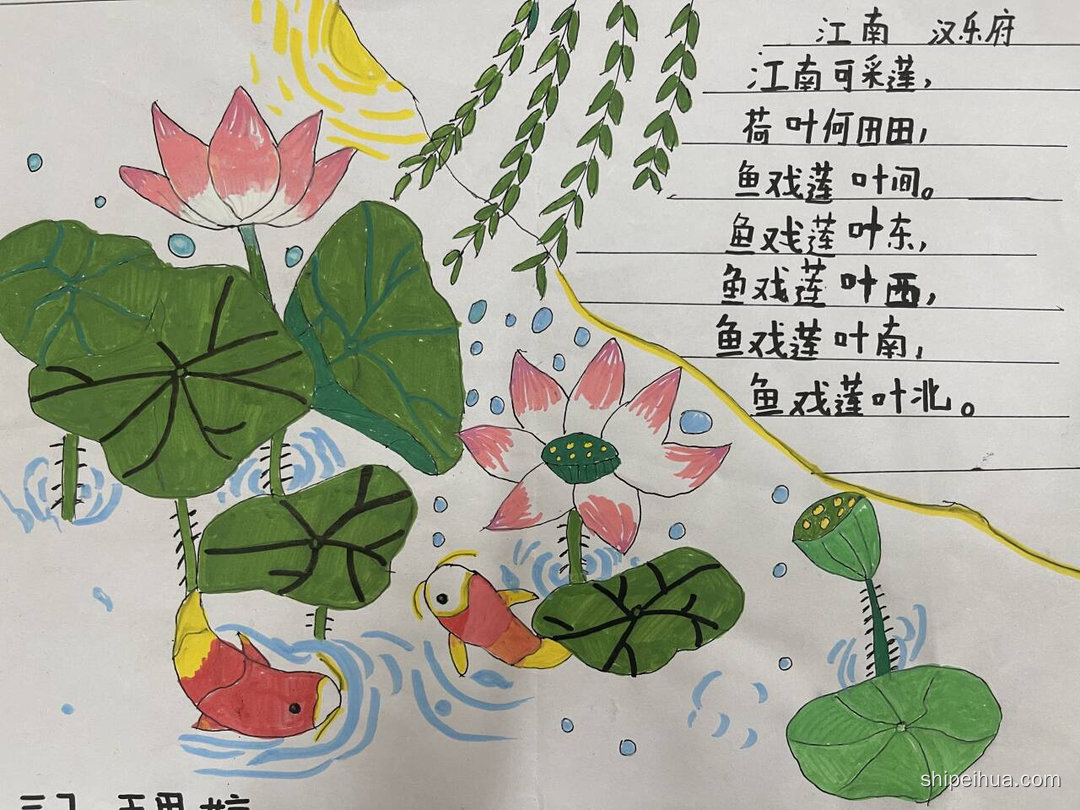 江南 汉乐府
江南可采莲，
荷叶何田田，
鱼戏莲叶间。
鱼戏莲叶东，
鱼戏莲叶西，
鱼戏莲叶南，
鱼戏莲叶北。
shipeihua.com